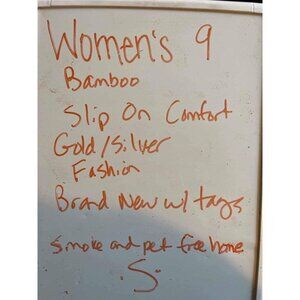 Women's 9
Bamboo
Slip On Comfort
Gold/Silver
Fashion
Brand New w/ tags
Smoke and pet free home
S